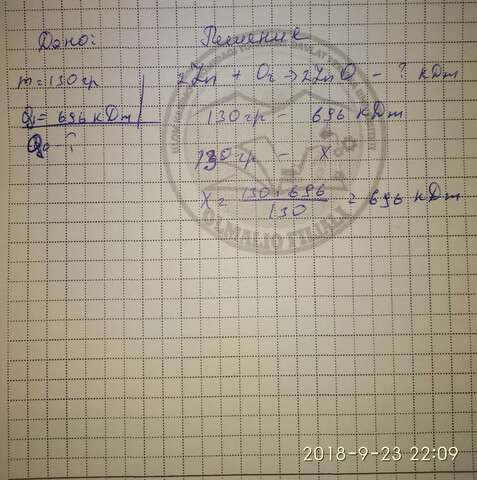 Дано: Решение
m = 130 гр 2Zn + O₂ → 2ZnO - ? кДж
Q₁ = 696 кДж 130 гр - 696 кДж
Q₀ - ? 130 гр - x
x = 130 · 696 / 130 = 696 кДж
OLMALIQ FILIALI
2018-9-23 22:09